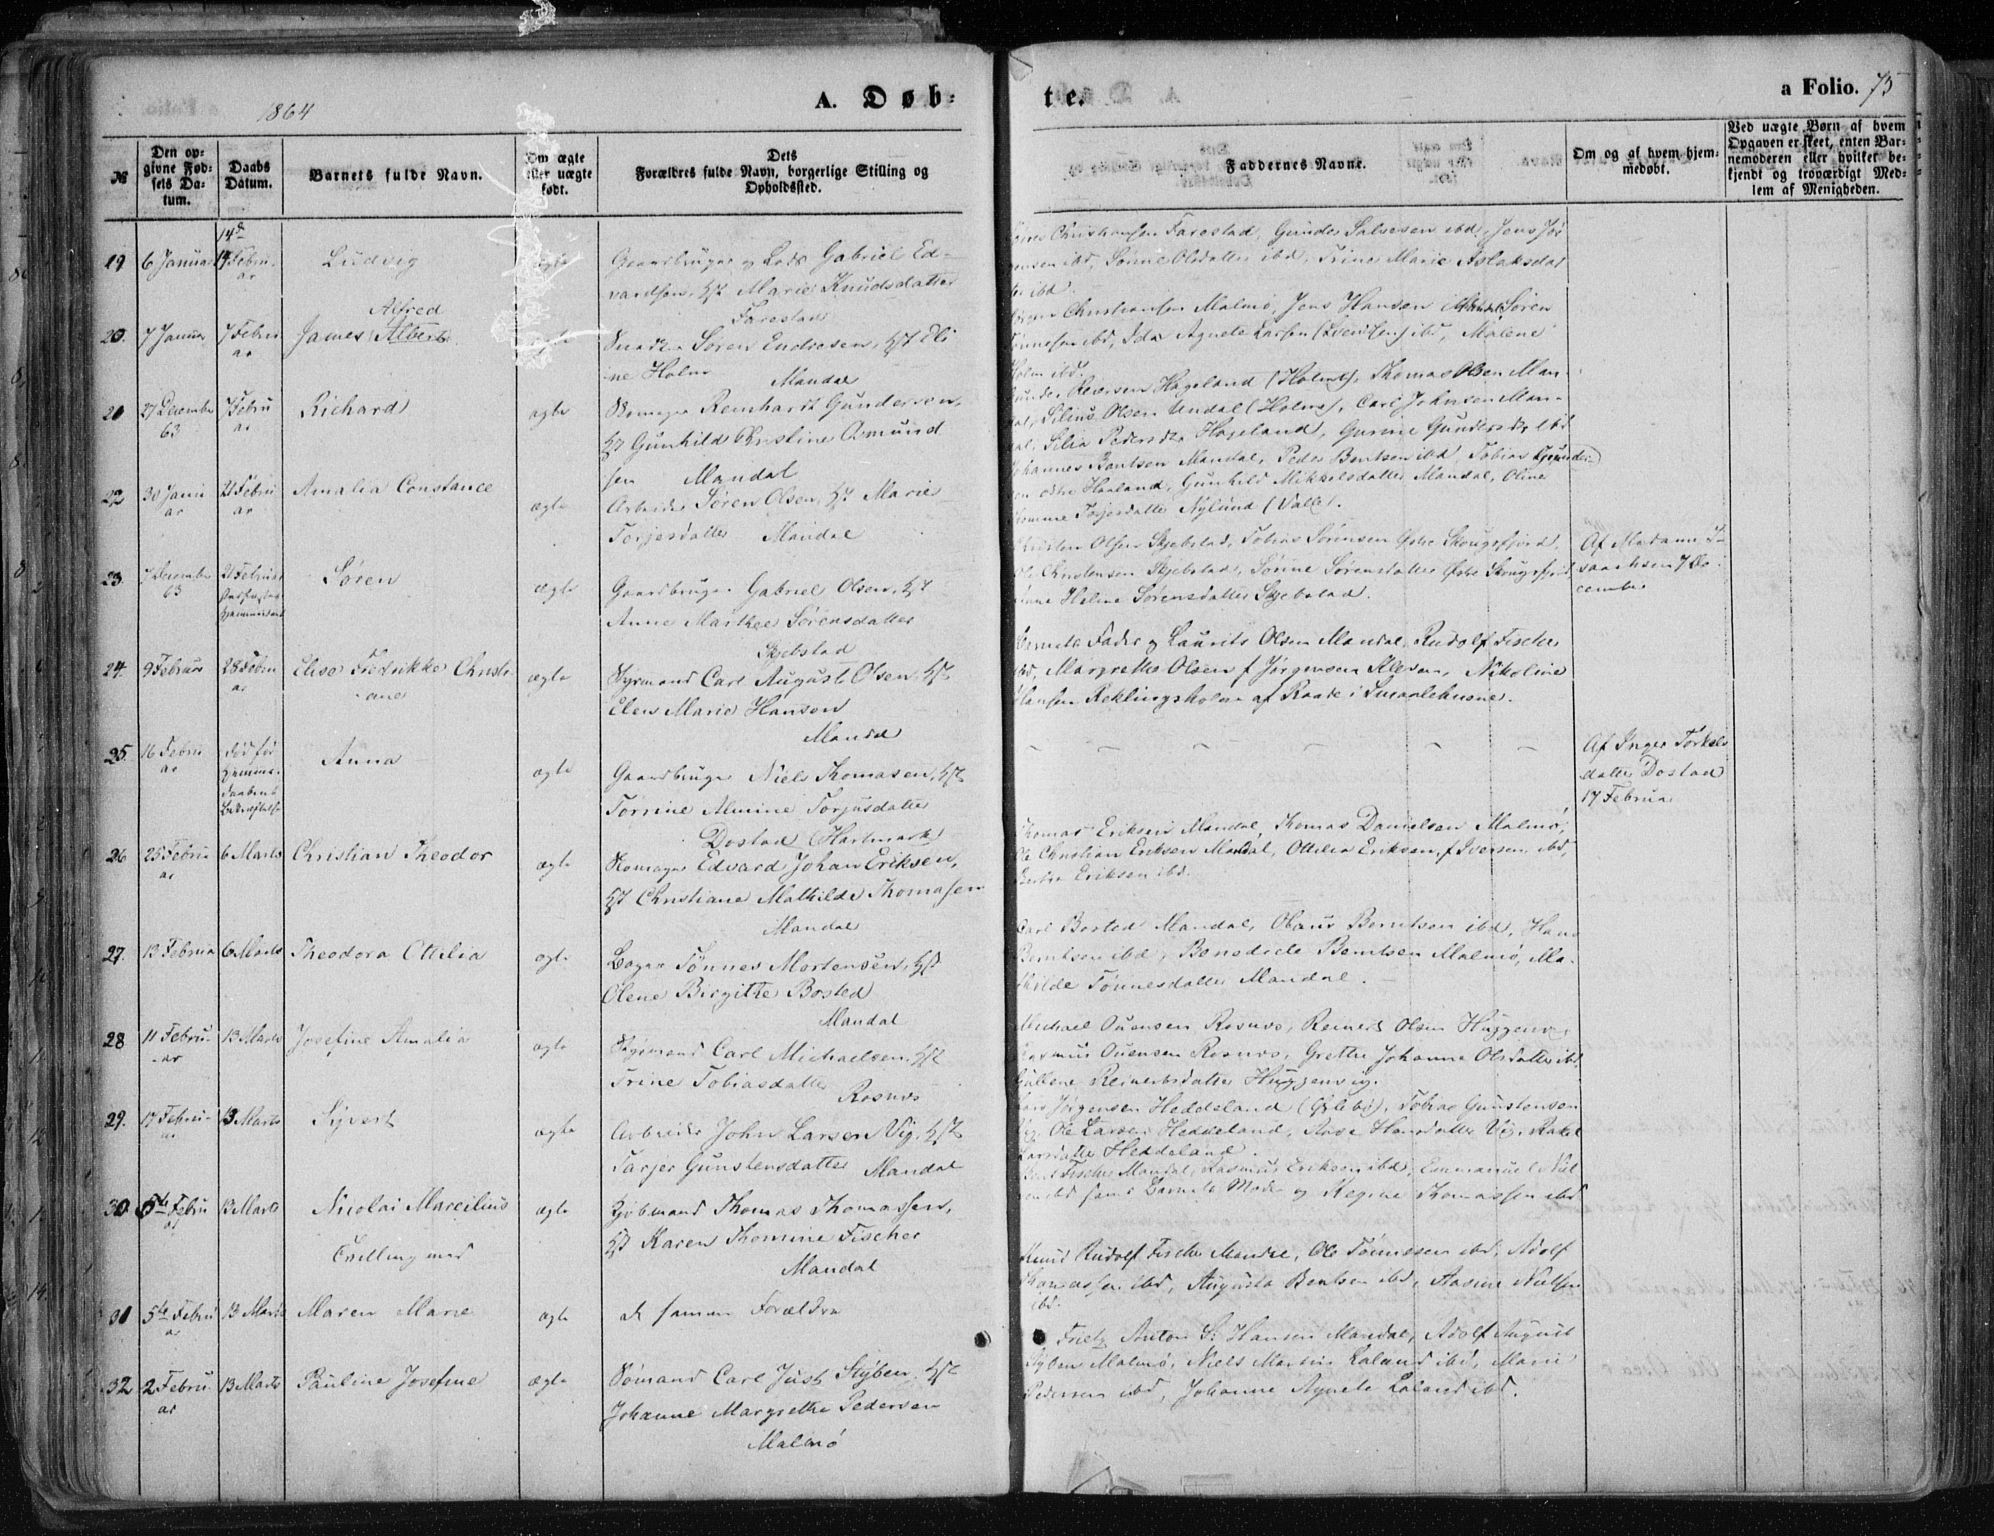 1864
A. Døb-
te.
a Folio. 75
№
Den op-
givne Fød-
sels Da-
tum.
Daabs
Datum.
Barnets fulde Navn.
Om ægte
eller uægte
født.
Dets
Forældres fulde Navn, borgerlige Stilling og
Opholdssted.
Faddernes Navne.
Om og af hvem hjem-
medøbt.
Ved uægte Børn af hvem
Opgaven er skeet, enten Bar-
nemoderen eller hvilket be-
kjendt og troværdigt Med-
lem af Menigheden.
19
6 Januar
14de
Febru-
ar
Ludvig
ægte
Gaardbruger og Lods Gabriel Ed-
vardsen, Hst Marie Knudsdatter
Farestad
Christiansen Farestad, Gunder Salvesen ibd, Jens Jør
gensen ibd, Sønne Olsdatter ibd, Trine Marie Aslaksdat
ter ibd
20.
7 Januar
7 Febru
ar
Alfred
James Albert
ægte
Søren Endresen, Hst Eli
ne Holm
Mandal
Christiansen Malmø, Jens Hansen Mandal, Søren
Tønnesen ibd, Ida Agnete Larsen (Svendsen) ibd, Malene
Holm ibd.
21
27 December
63
7 Febru
ar
Richard
ægte
Skomager Reinhardt Gundersen,
Hst Gunhild Christine Asmund
sen Mandal
Gunder Reiersen Hageland (Holmt), Thomas Olsen Man-
dal, Silius Olsen Undal (Holme), Carl Johnsen Man-
dal, Silia Pedersdtr Hageland, Gurine Gundersdtr ibd
22
30 Janu
ar
21 Febru
ar
Amalia Constance
ægte
Arbeider Søren Olsen, Hst Marie
Torjesdatter Mandal
Johannes Bentsen Mandal, Peder Bentsen ibd, Tobias Gunder-
sen østre Haaland, Gunhild Mikkelsdatter Mandal, Oline
Tomine Torjesdatter Nylund (Valle).
23.
7 December
63
21 Februar
Søren
ægte
Gaardbruger Gabriel Olsen, Hst
Anne Marthee Sørensdatter
Skjebstad
Christen Olsen Skjebstad, Tobias Sørensen Østre Skougsfjord,
Ole Christensen Skjebstad, Sønne Sørensdatter Østre Skougsfjord
Anne Helene Sørensdatter Skjebstad.
Af Madame I-
saachsen 7 De-
cember
24.
9 Februar
28 Febru
ar
Elise Fredrikke Christi
ane
ægte
Styrmand Carl August Olsen, Hst
Elen Marie Hansen
Mandal
Barnets Fader og Laurits Olsen Mandal, Rudolf Fischer
ibd, Margrethe Olsen f Jørgensen Kleven, Nikoline
Hansen Keklingsholm af Raade i Smaalehnene.
25.
16 Febru
ar
død før
Hjemme-
daabens
Bekræftelse
Anna
ægte
Gaardbruger Niels Thomasen, Hst
Torrine Almine Torjusdatter
Dostad (Hartmark)
Af Inger Torkels
datter Dostad
17 Februar
26
25 Febru
ar
6 Marts
Christian Theodor
ægte
Skomager Edvard Johan Eriksen,
Hst Christiane Mathilde Thomasen
Mandal
Thomas Eriksen Mandal, Thomas Danielsen Malmø,
Ole Christian Eriksen Mandal, Ottilia Eriksen f Iversen ibd,
Eriksen ibd.
27.
13 Februar
6 Marts
Theodora Ottilia
ægte
Bager Tønnes Mortensen, Hst
Olene Birgitte Bosted
Mandal
Carl Bosted Mandal, Olaus Berntsen ibd, Hans
Berntsen ibd, Benedicte Berntsen Malmø, Ma-
thilde Tønnesdatter Mandal.
28
11 Febru-
ar
13 Marts
Josefine Amalia
ægte
Styrmand Carl Michaelsen, Hst
Trine Tobiasdatter
Rosnes
Michael Ouensen Rosnes, Reinert Olsen Huggenvig
Rasmus Ouensen Rosnes, Grethe Johanne Olsdatter ibd
Gulbene Reinertsdatter Huggenvig.
29.
17 Febru-
ar
13 Marts
Syvert
ægte
Arbeider John Larsen Vig, Hst
Tarjer Gunstensdatter Mandal
Lars Jørgensen Heddeland (Øslebø), Tobias Gunstensen
Vig, Ole Larsen Heddeland, Aase Hansdatter Vig, Rakel
Larsdatter Heddeland.
30.
5te Febru
ar
13 Marts
Nicolai Marcilius
Tvilling med
ægte
Kjøbmand Thomas Thomassen,
Hst Karen Thomine Fischer
Mandal
Fischer Mandal, Rasmus Eriksen ibd, Emmanuel Niel
sen ibd samt Barnets Moder og Regine Thomassen ibd
31
5te Febru
ar
13 Marts
Maren Marie
ægte
de samme Forældre
Knud Rudolf Fischer Mandal, Ole Tønnessen ibd, Adolf
Thomassen ibd, Augusta Bentsen ibd, Aasine Nielsen
ibd.
32
2 Febru
ar
13 Marts
Pauline Josefine
ægte
Sømand Carl Just Styben, Hst
Johanne Margrethe Pedersen
Malmø
Frietz Anton S. Hansen Mandal, Adolf August
Styben Malmø, Niels Martin Laland ibd, Marie
Pedersen ibd, Johanne Agnete Laland ibd.